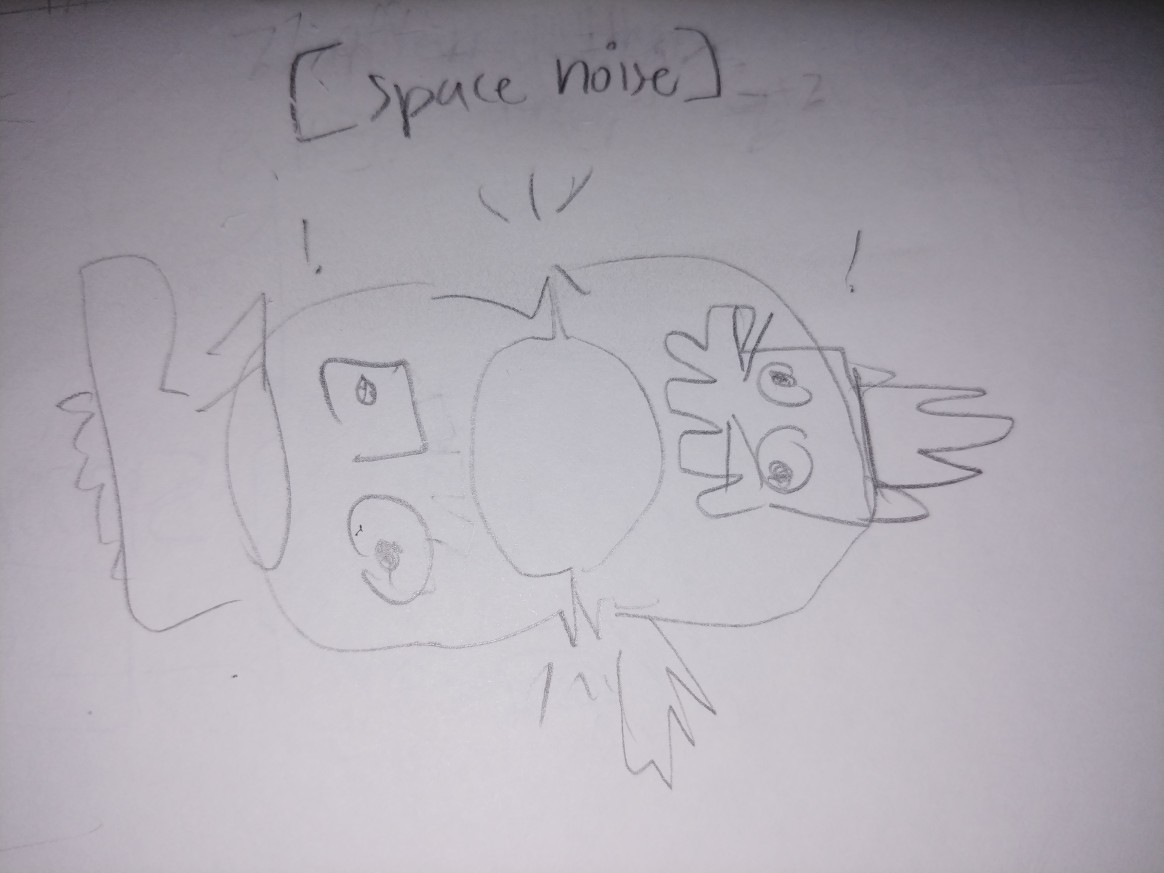 [space noise]
!
!